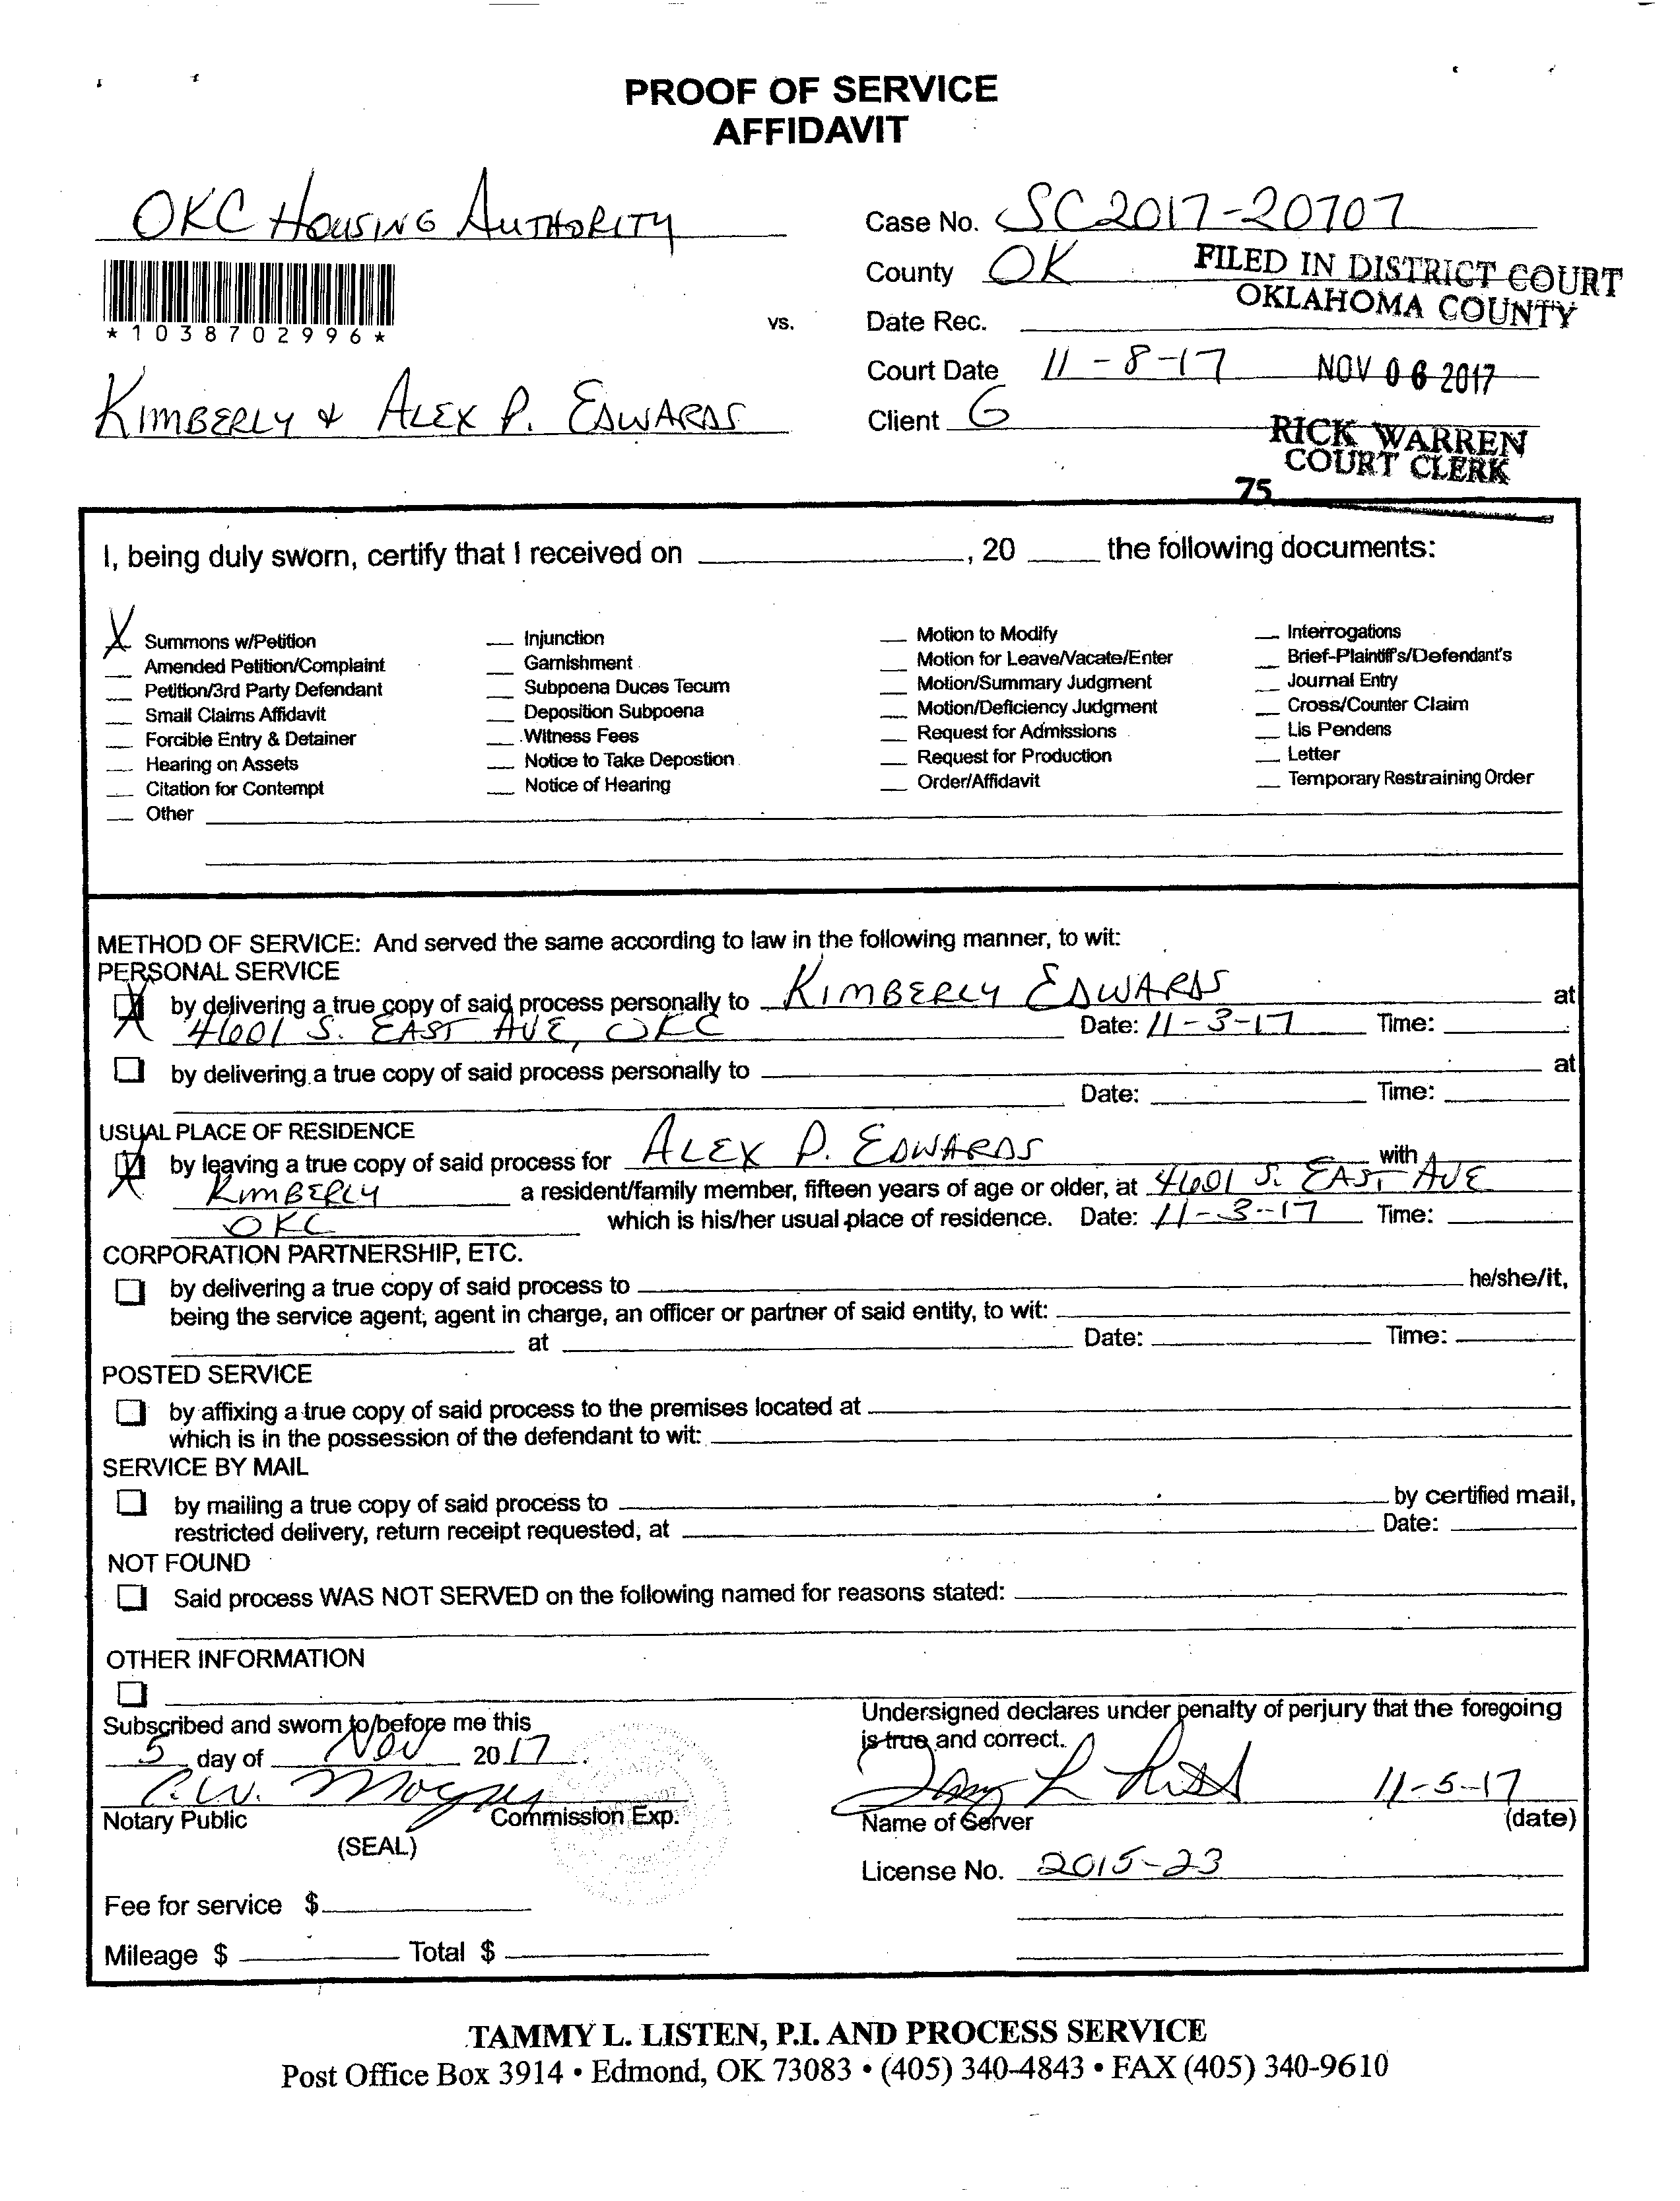 PROOF OF SERVICE
AFFIDAVIT
OKC HOUSING AUTHORITY
Case No. SC2017-20707
County OK
FILED IN DISTRICT COURT
OKLAHOMA COUNTY
*1038702996*
vs.
Date Rec.
Court Date 11-8-17
NOV 06 2017
KIMBERLY & ALEX P. EDWARDS
Client G
RICK WARREN
COURT CLERK
75
I, being duly sworn, certify that I received on ____, 20 ____ the following documents:
X Summons w/Petition
Amended Petition/Complaint
Petition/3rd Party Defendant
Small Claims Affidavit
Forcible Entry & Detainer
Hearing on Assets
Citation for Contempt
Other
Injunction
Garnishment
Subpoena Duces Tecum
Deposition Subpoena
Witness Fees
Notice to Take Depostion
Notice of Hearing
Motion to Modify
Motion for Leave/Vacate/Enter
Motion/Summary Judgment
Motion/Deficiency Judgment
Request for Admissions
Request for Production
Order/Affidavit
Interrogations
Brief-Plaintiff's/Defendant's
Journal Entry
Cross/Counter Claim
Lis Pendens
Letter
Temporary Restraining Order
METHOD OF SERVICE: And served the same according to law in the following manner, to wit:
PERSONAL SERVICE
X by delivering a true copy of said process personally to KIMBERLY EDWARDS at
4601 S. EAST AVE, OKC Date: 11-3-17 Time:
by delivering a true copy of said process personally to at
Date: Time:
USUAL PLACE OF RESIDENCE
X by leaving a true copy of said process for ALEX P. EDWARDS with
KIMBERLY a resident/family member, fifteen years of age or older, at 4601 S. EAST AVE
OKC which is his/her usual place of residence. Date: 11-3-17 Time:
CORPORATION PARTNERSHIP, ETC.
by delivering a true copy of said process to he/she/it,
being the service agent, agent in charge, an officer or partner of said entity, to wit:
at Date: Time:
POSTED SERVICE
by affixing a true copy of said process to the premises located at
which is in the possession of the defendant to wit:
SERVICE BY MAIL
by mailing a true copy of said process to by certified mail,
restricted delivery, return receipt requested, at Date:
NOT FOUND
Said process WAS NOT SERVED on the following named for reasons stated:
OTHER INFORMATION
Subscribed and sworn to/before me this
5 day of Nov 2017
Notary Public Commission Exp.
(SEAL)
Fee for service $
Mileage $ Total $
Undersigned declares under penalty of perjury that the foregoing
is true and correct.
11-5-17
Name of Server (date)
License No. 2015-23
TAMMY L. LISTEN, P.I. AND PROCESS SERVICE
Post Office Box 3914 • Edmond, OK 73083 • (405) 340-4843 • FAX (405) 340-9610